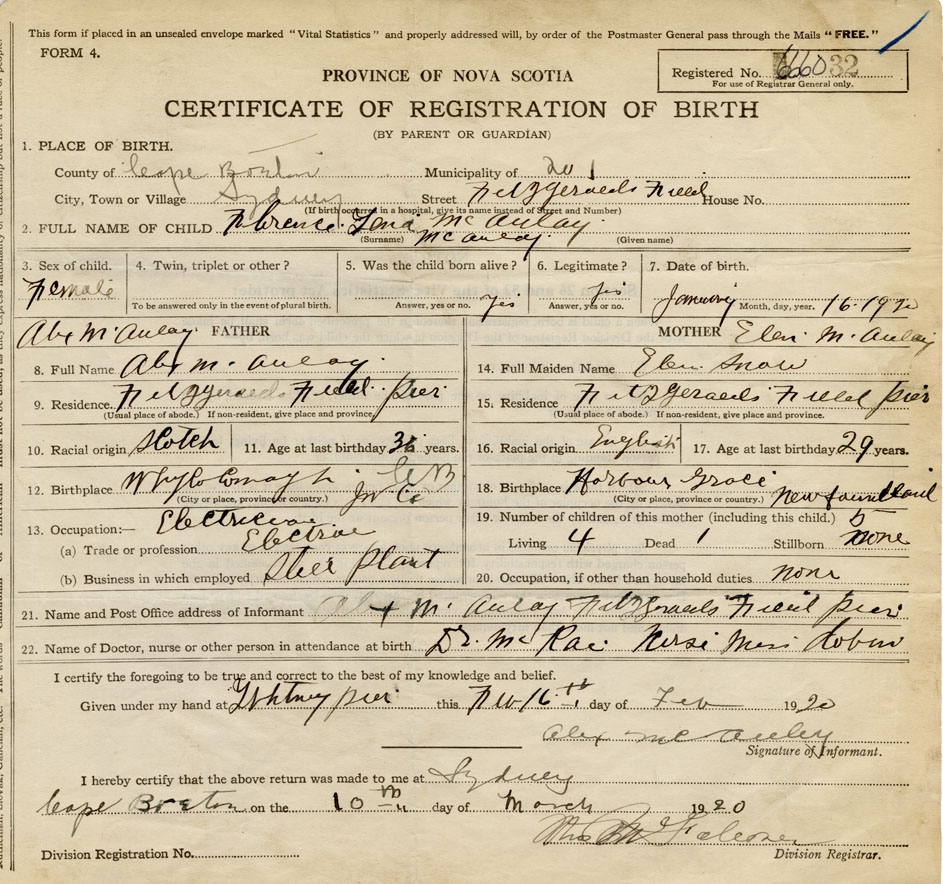 This form if placed in an unsealed envelope marked "Vital Statistics" and properly addressed will, by order of the Postmaster General pass through the Mails "FREE."
FORM 4.
Registered No. 66032
For use of Registrar General only.
PROVINCE OF NOVA SCOTIA
CERTIFICATE OF REGISTRATION OF BIRTH
(BY PARENT OR GUARDIAN)
1. PLACE OF BIRTH.
County of Cape Breton Municipality of
City, Town or Village Sydney Street Fitzgeraeds Field House No.
(If birth occurred in a hospital, give its name instead of Street and Number)
2. FULL NAME OF CHILD Florence Lena McAulay
(Surname) McAulay (Given name)
3. Sex of child. 4. Twin, triplet or other? 5. Was the child born alive? 6. Legitimate? 7. Date of birth.
Female To be answered only in the event of plural birth. Answer, yes or no. yes Answer, yes or no. yes January Month, day, year. 16-1920
Alex McAulay FATHER MOTHER Elen McAulay
8. Full Name Alex McAulay 14. Full Maiden Name Elen Snow
9. Residence Fitzgeraeds Field pier 15. Residence Fitzgeraeds Field pier
(Usual place of abode.) If non-resident, give place and province. (Usual place of abode.) If non-resident, give place and province.
10. Racial origin Scotch 11. Age at last birthday 36 years. 16. Racial origin English 17. Age at last birthday 29 years.
12. Birthplace Whycocomagh CB 18. Birthplace Harbour Grace
(City or place, province or country.) Inv Co (City or place, province or country.) Newfoundland
13. Occupation:— Electrician 19. Number of children of this mother (including this child.) 5
(a) Trade or profession Electrician Living 4 Dead 1 Stillborn none
(b) Business in which employed Steel Plant 20. Occupation, if other than household duties. none
21. Name and Post Office address of Informant Alex McAulay Fitzgeraeds Field pier
22. Name of Doctor, nurse or other person in attendance at birth Dr. McRae Nurse Miss
I certify the foregoing to be true and correct to the best of my knowledge and belief.
Given under my hand at Whitney pier this Feb 16th day of Feb 1920
Alex McAuley
Signature of Informant.
I hereby certify that the above return was made to me at Sydney
Cape Breton on the 10th day of March 1920
Division Registration No. Division Registrar.